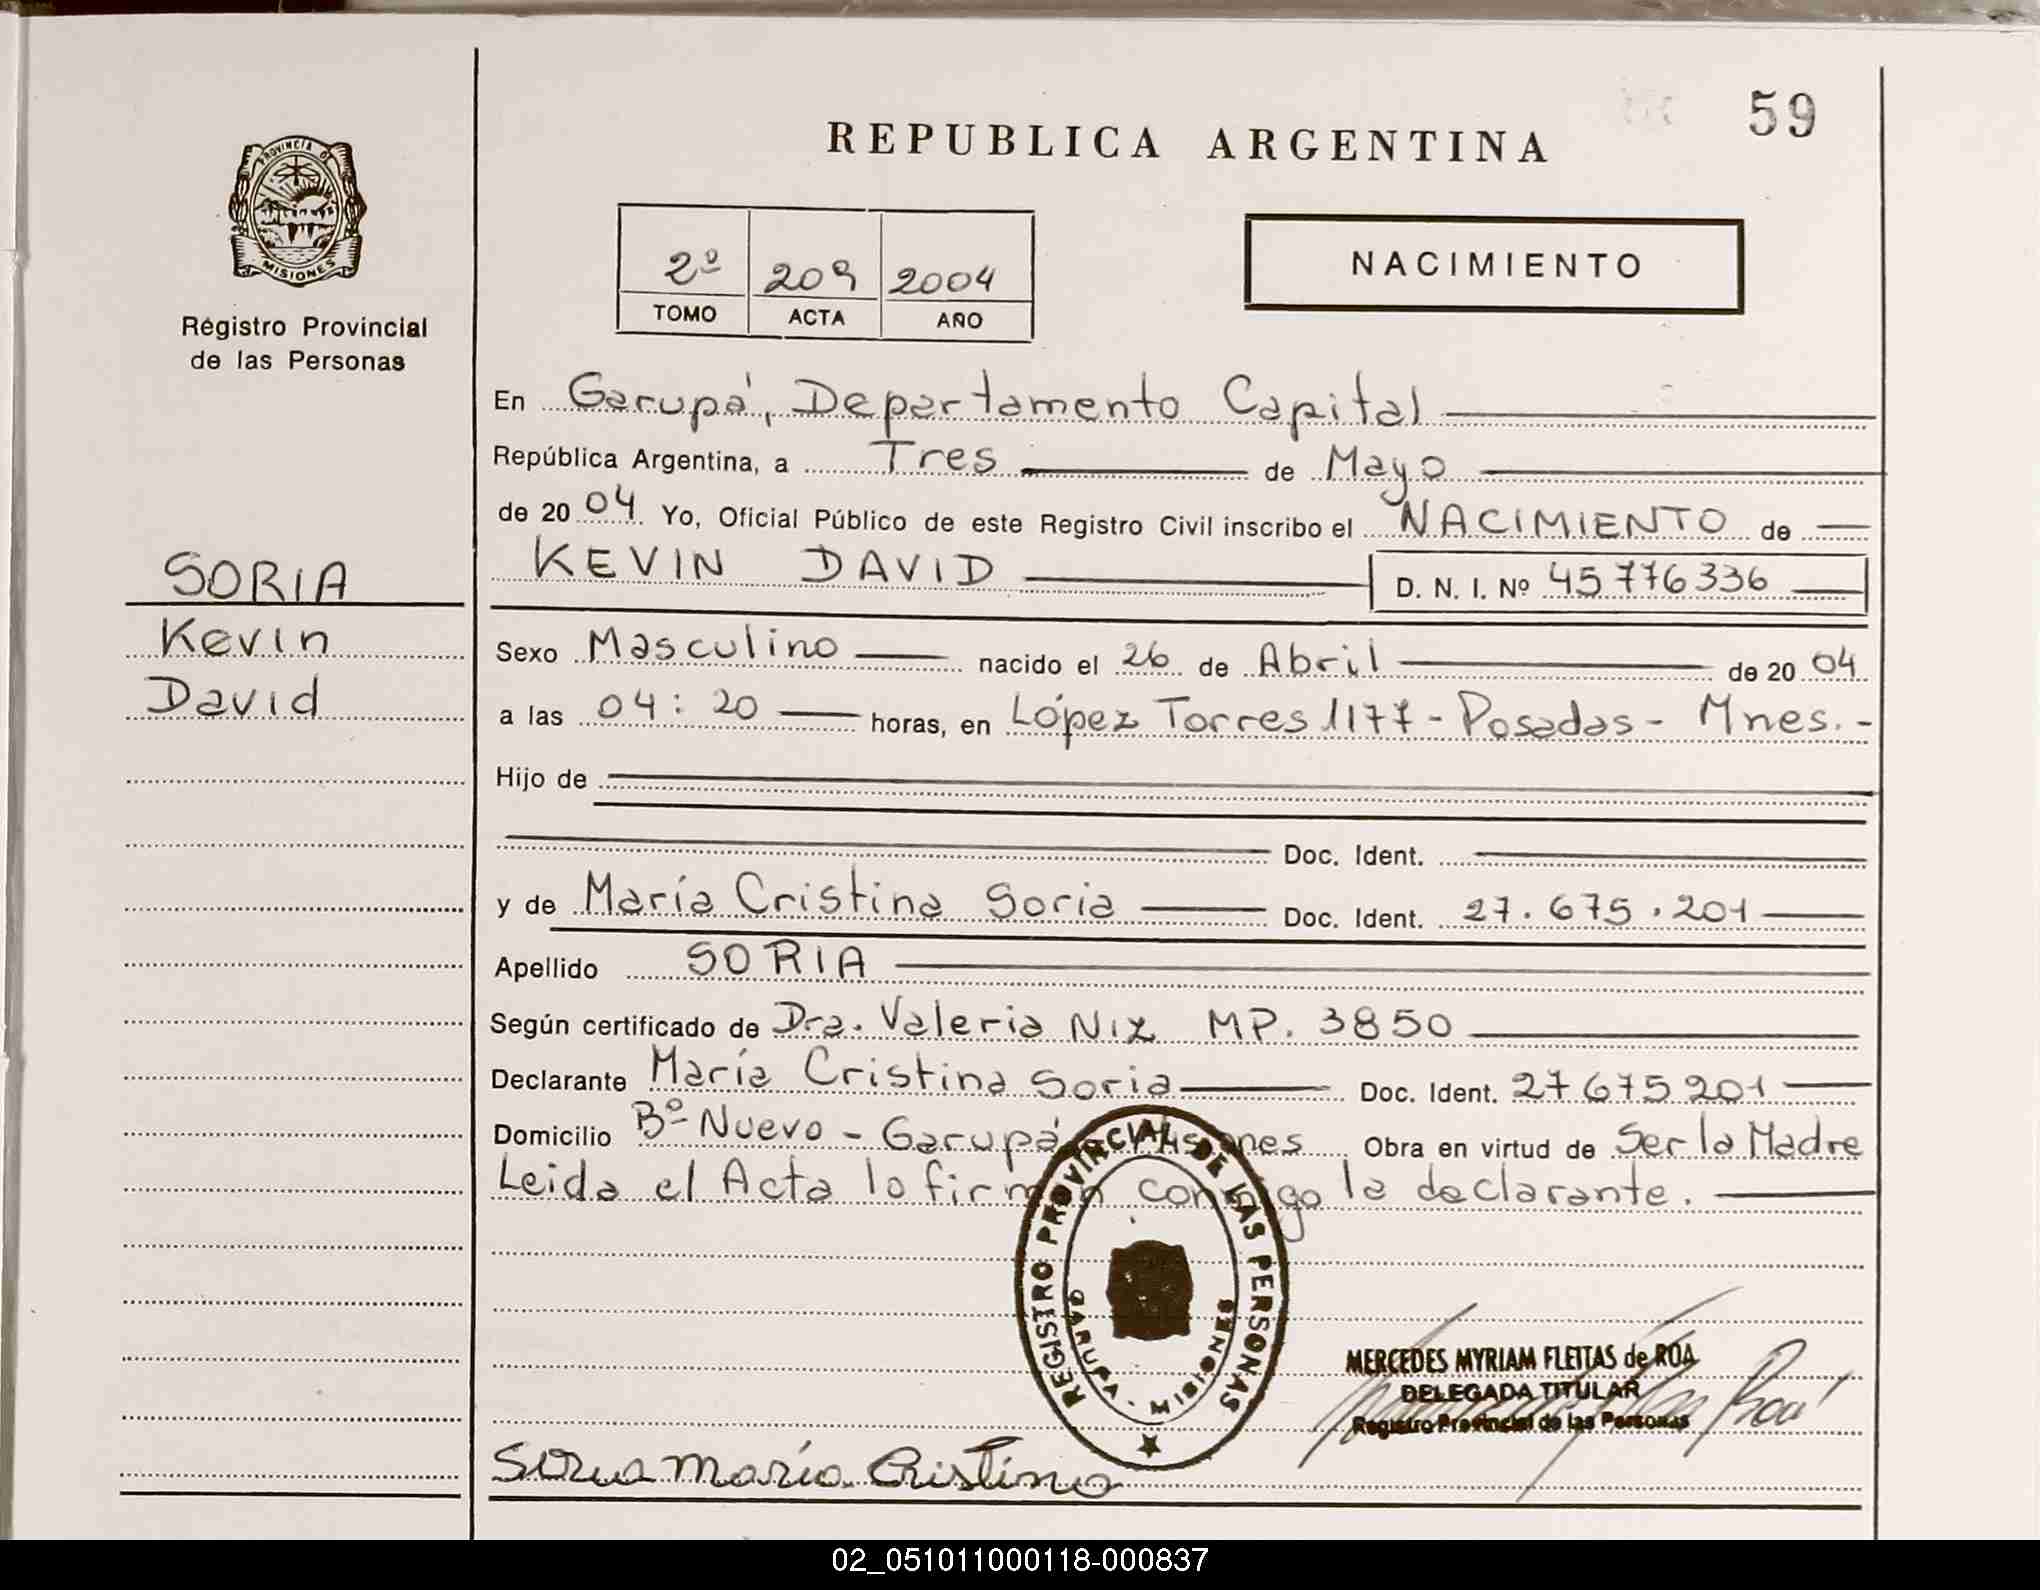 59
REPUBLICA ARGENTINA
PROVINCIA DE
MISIONES
Registro Provincial
de las Personas
2º 209 2004
TOMO ACTA AÑO
NACIMIENTO
En Garupá, Departamento Capital
República Argentina, a Tres de Mayo
de 2004 Yo, Oficial Público de este Registro Civil inscribo el NACIMIENTO de
KEVIN DAVID D. N. I. Nº 45776336
SORIA
Kevin
David
Sexo Masculino nacido el 26 de Abril de 2004
a las 04:20 horas, en López Torres 1177 - Posadas - Mnes. -
Hijo de
Doc. Ident.
y de María Cristina Soria Doc. Ident. 27.675.201
Apellido SORIA
Según certificado de Dra. Valeria Niz MP. 3850
Declarante María Cristina Soria Doc. Ident. 27675201
Domicilio Bº Nuevo - Garupá Misiones Obra en virtud de Ser la Madre
Leida el Acta lo firman conmigo la declarante.
REGISTRO PROVINCIAL DE LAS PERSONAS
GARUPA - MISIONES
MERCEDES MYRIAM FLEITAS de ROA
DELEGADA TITULAR
Registro Provincial de las Personas
Soria María Cristina
02_051011000118-000837